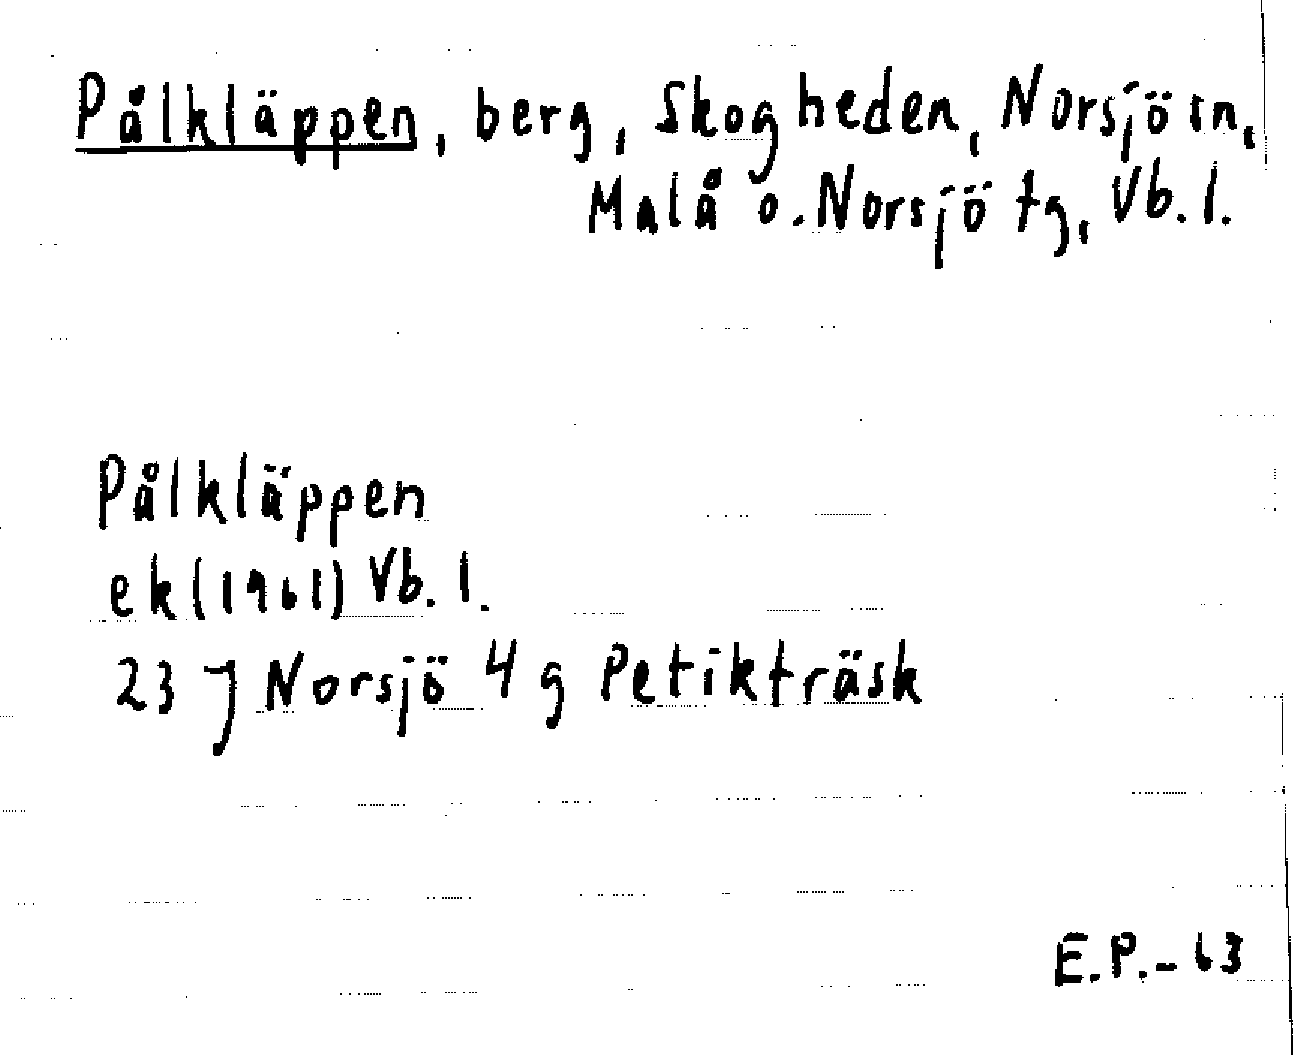 Pålkläppen, berg, Skogheden, Norsjö sn,
Malå o. Norsjö tg, Vb. l.
Pålkläppen
ek (1961) Vb. l.
23 J Norsjö 4 g Petikträsk
E.P.-63